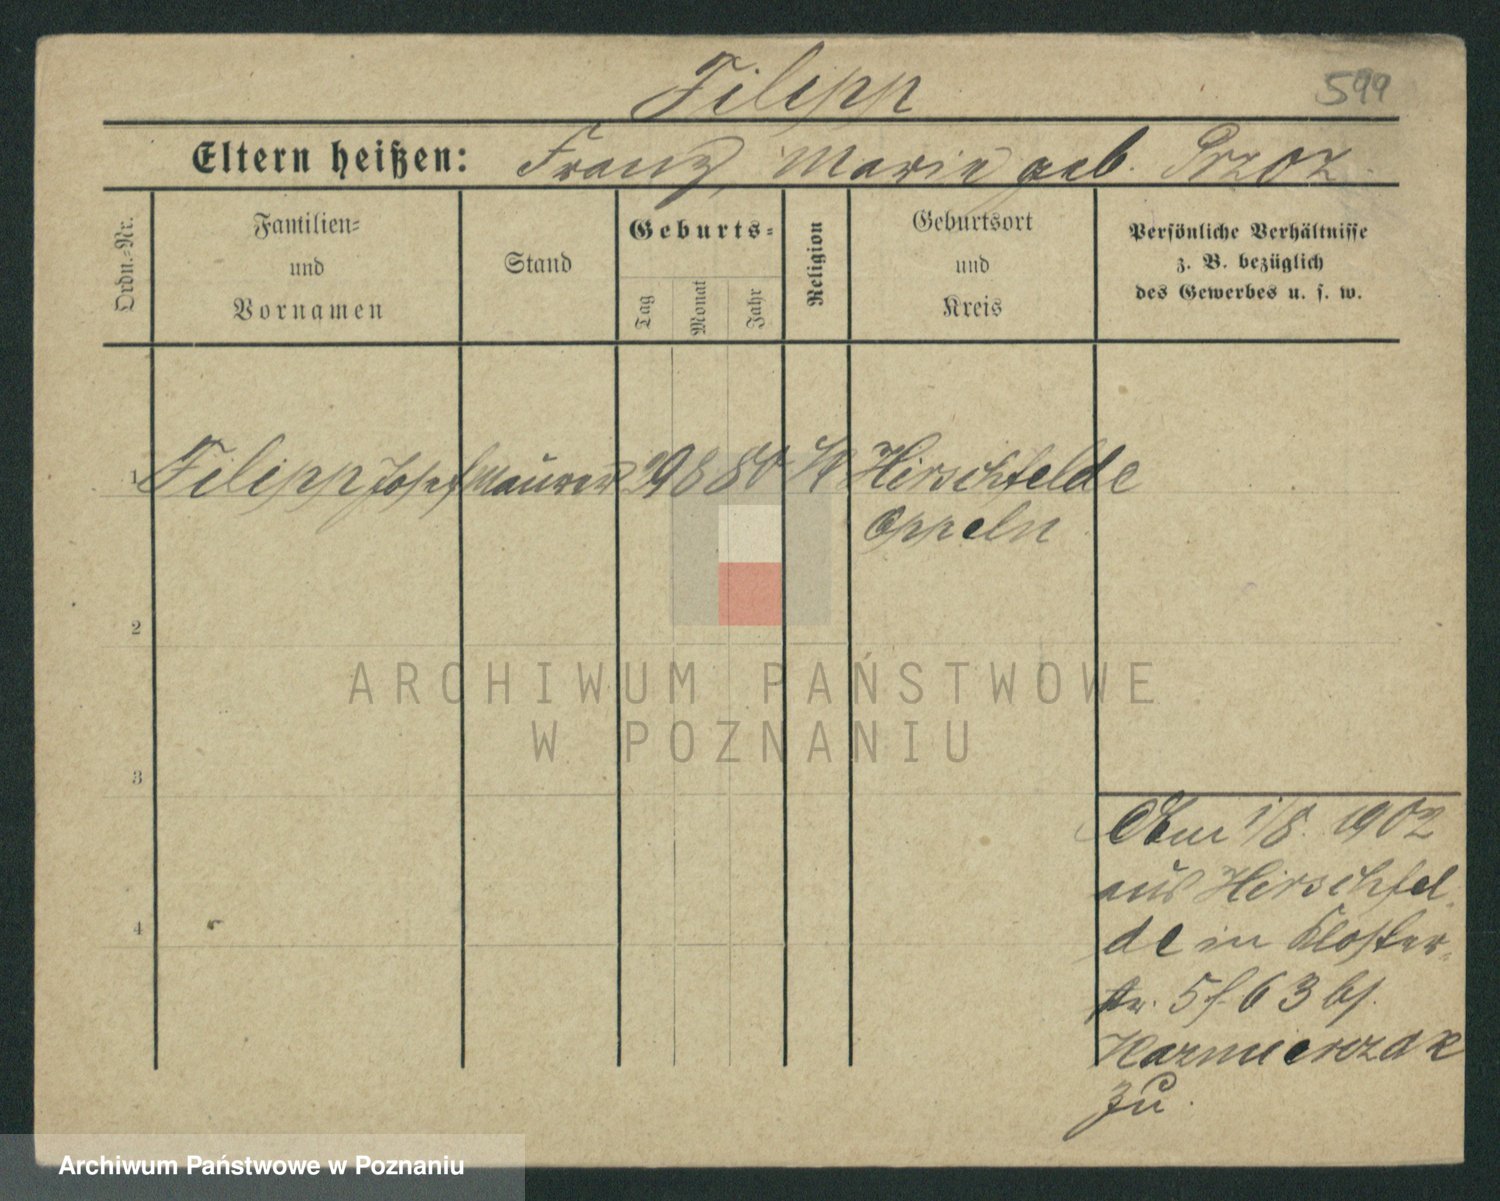 Filipp
599
Eltern heißen: Franz, Marie geb. Przoz
Ordn.-Nr.
Familien-
und
Vornamen
Stand
Geburts-
Tag
Monat
Jahr
Religion
Geburtsort
und
Kreis
Persönliche Verhältnisse
z. B. bezüglich
des Gewerbes u. s. w.
1 Filipp Josef Maurer 29 8 80 K Hirschfelde
Oppeln
2
3
4
1/8. 1902
aus Hirschfel-
de in Kloster-
str. 5 63 bs.
Kazmierczak
zu.
ARCHIWUM PAŃSTWOWE
W POZNANIU
Archiwum Państwowe w Poznaniu